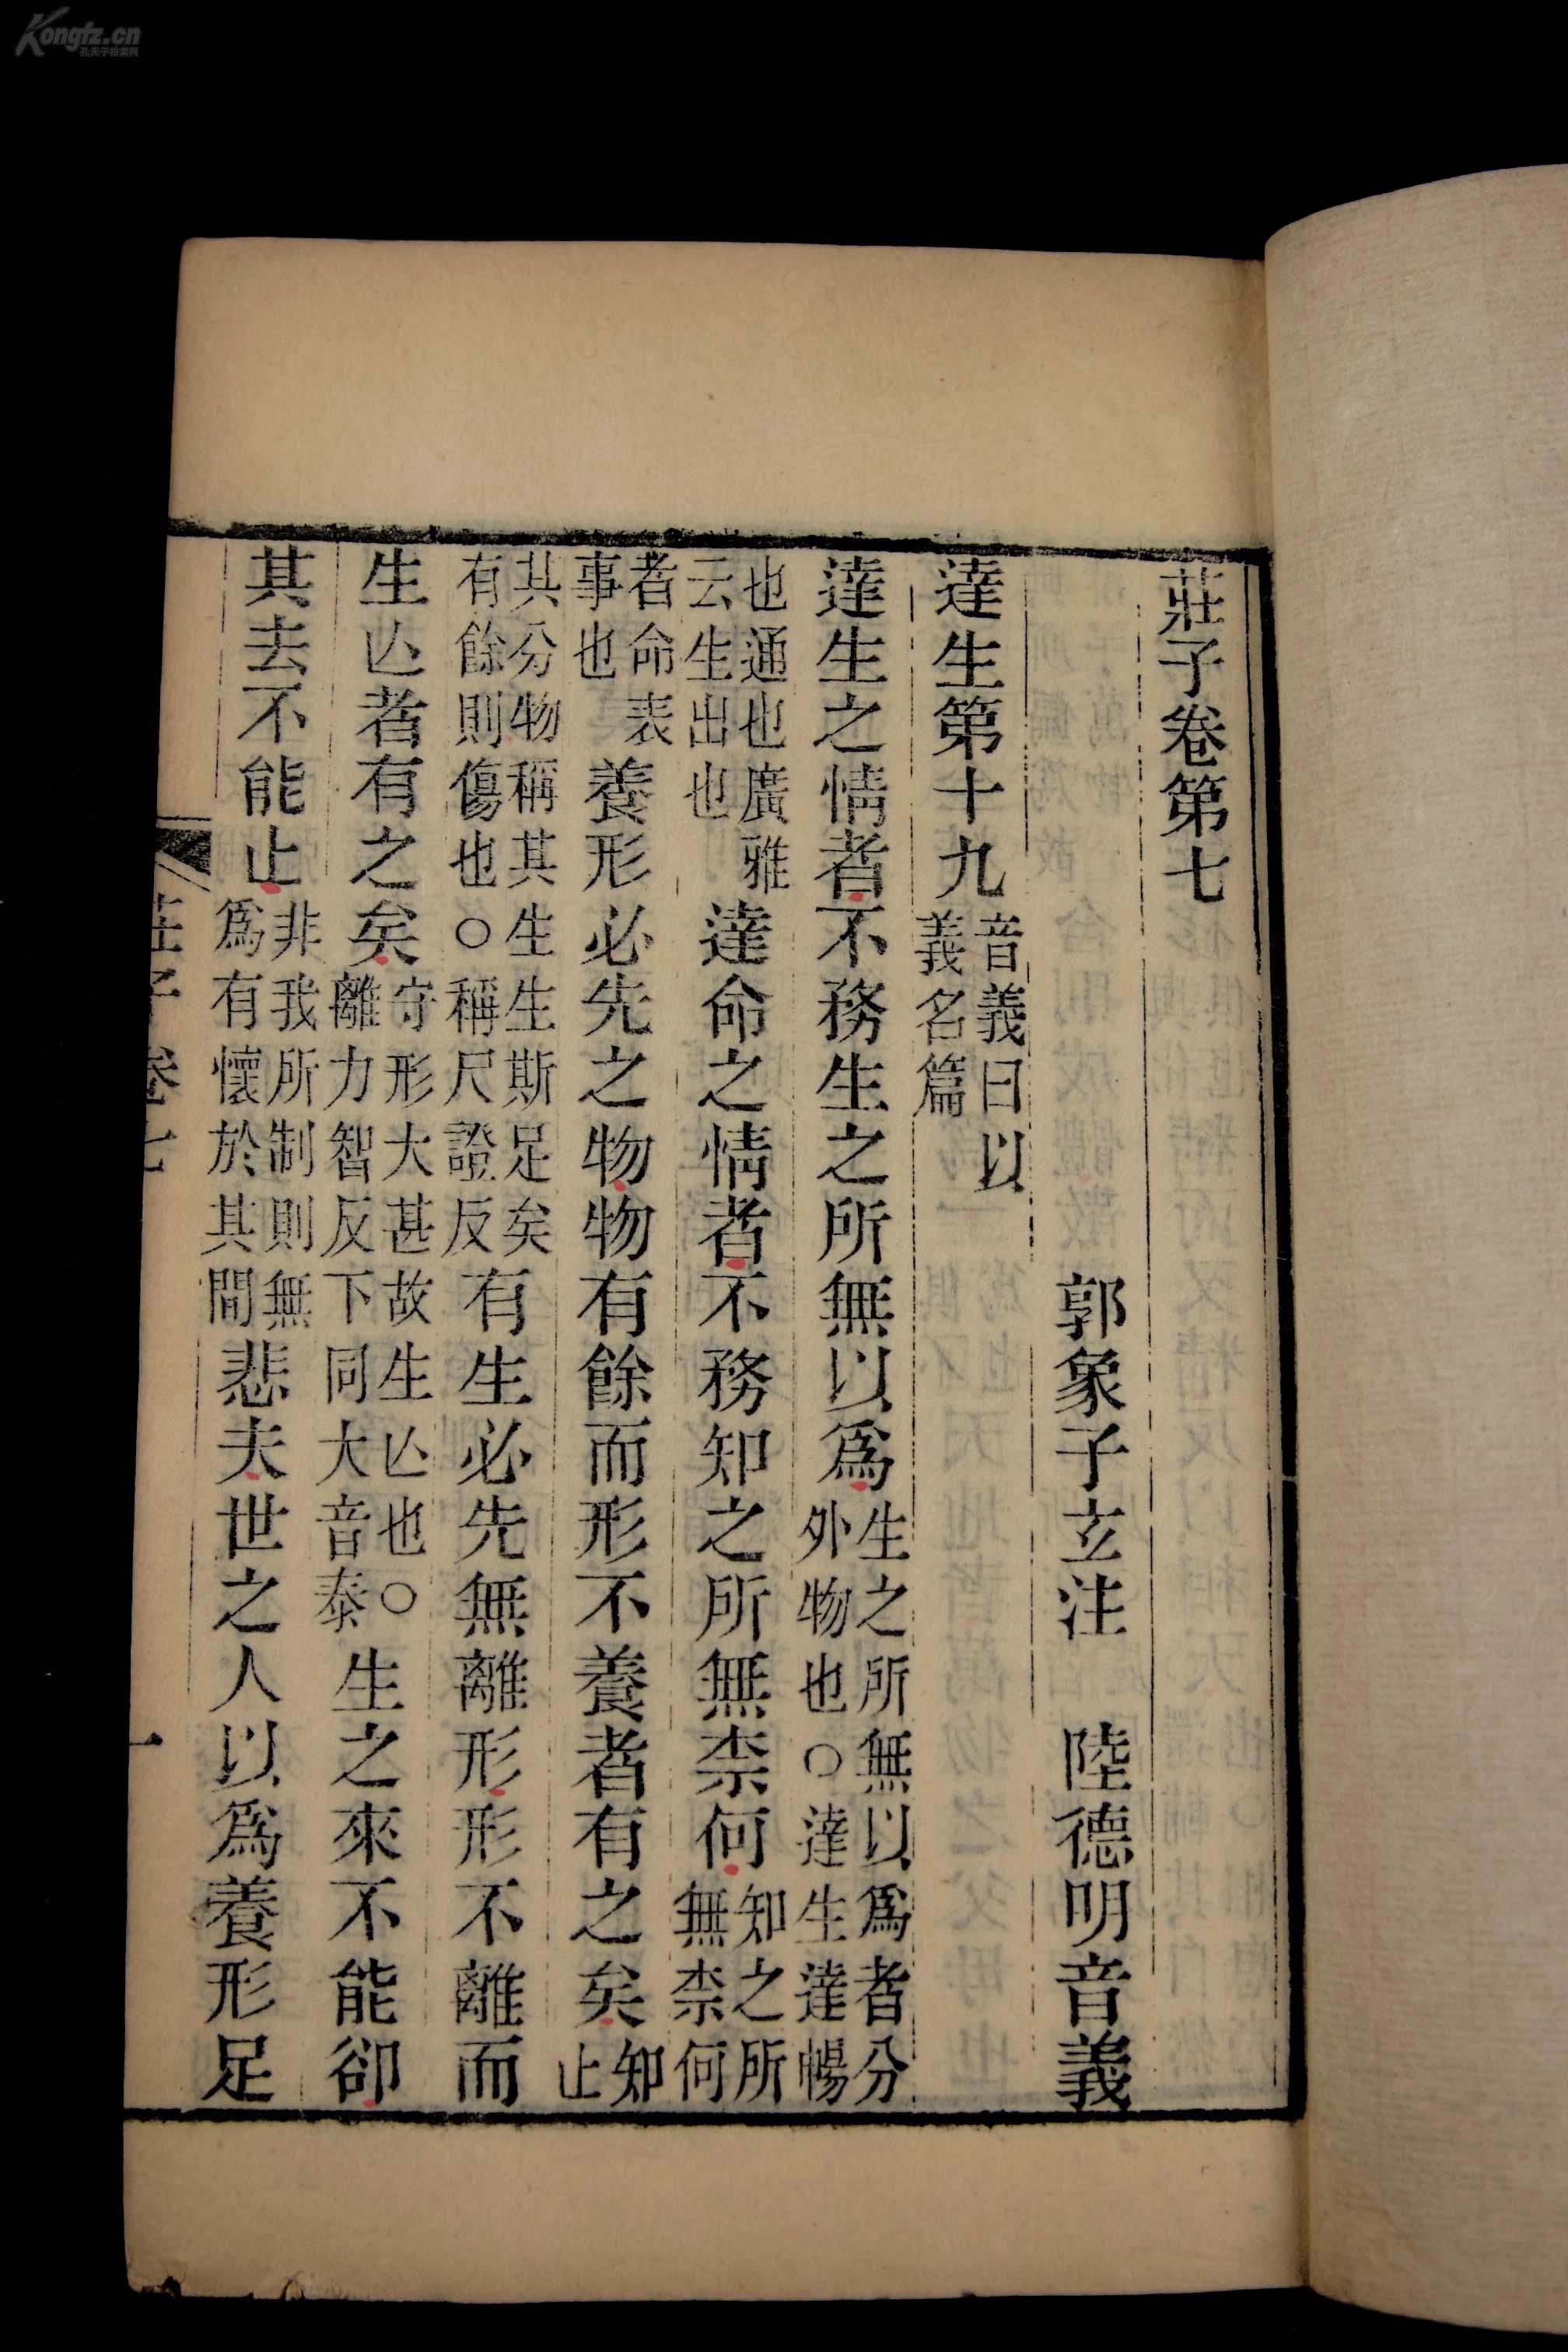 Kongfz.cn
孔夫子拍卖网
莊子卷第七
郭象子玄注 陸德明音義
達生第十九 音義曰以義名篇
達生之情者不務生之所無以爲 生之所無以爲者分外物也○達生達暢
也通也廣雅云生出也 達命之情者不務知之所無柰何 知之所無柰何
者命表事也 養形必先之物物有餘而形不養者有之矣 知止
其分物稱其生生斯足矣有餘則傷也○稱尺證反 有生必先無離形形不離而
生亾者有之矣 守形大甚故生亾也○離力智反下同大音泰 生之來不能卻
其去不能止 非我所制則無爲有懷於其間 悲夫世之人以爲養形足
莊子卷七
一